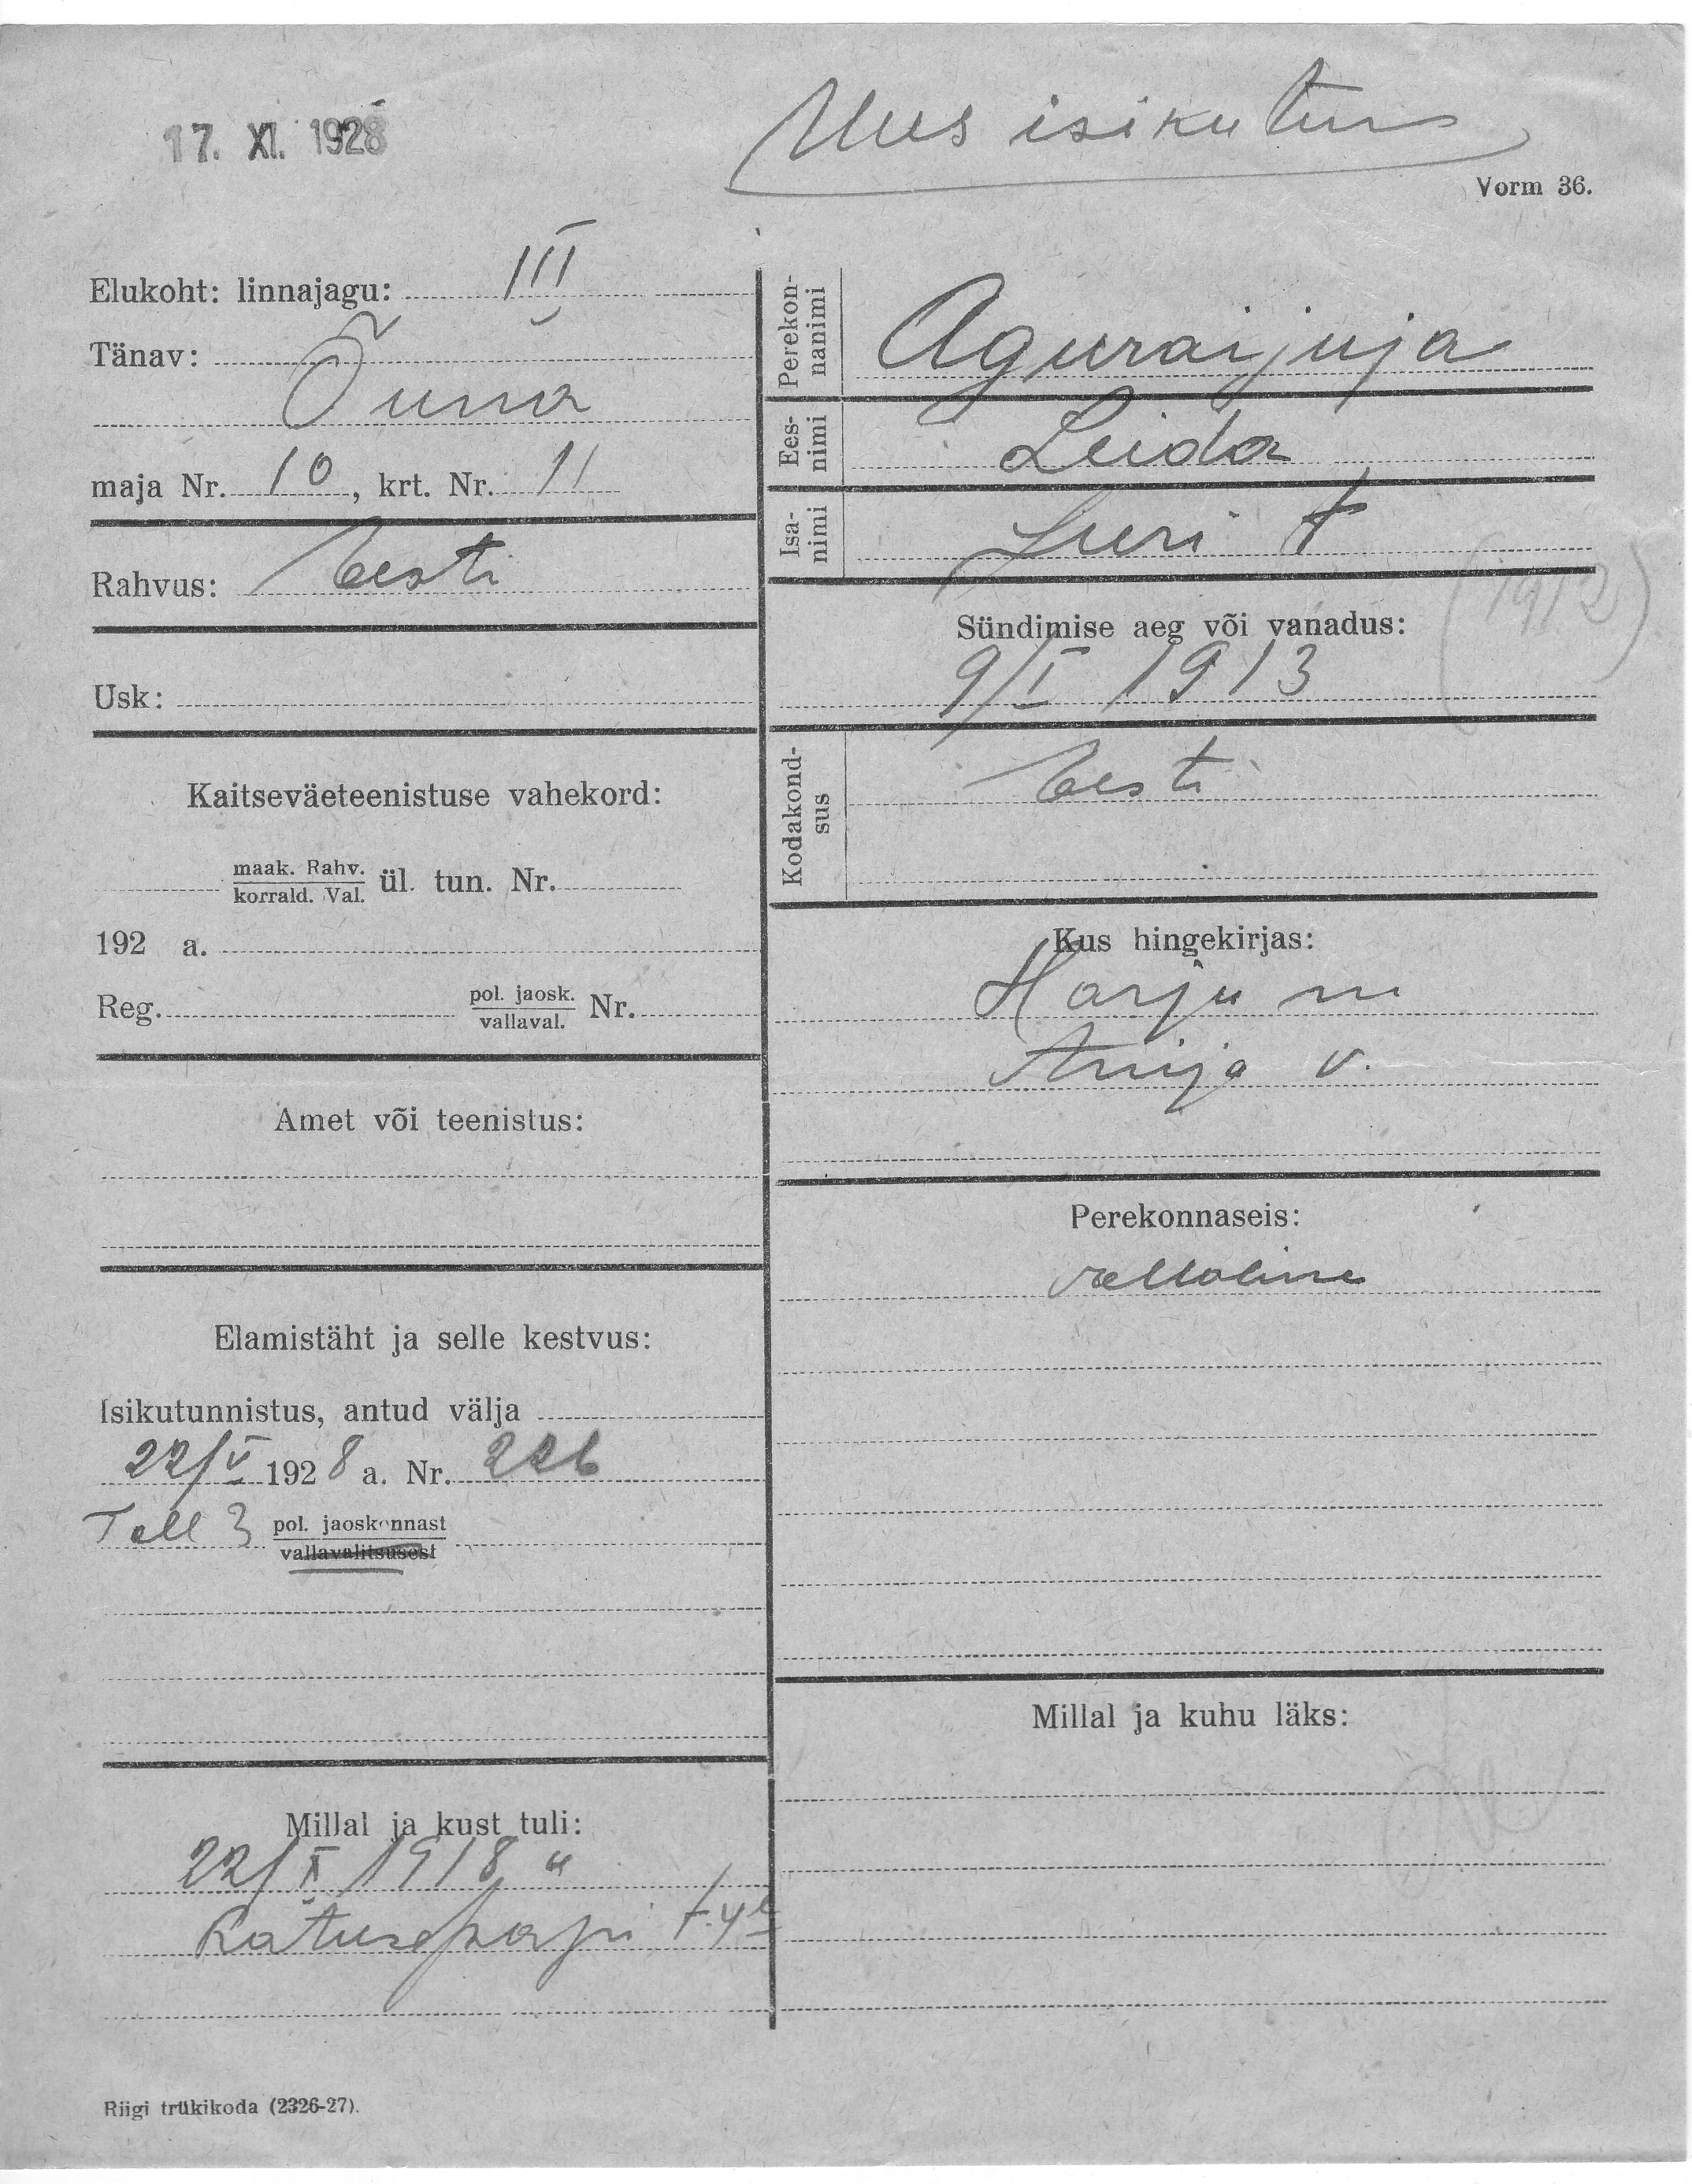 17. XI. 1928
Uus isikutun
Vorm 36.
Elukoht: linnajagu: III
Tänav:
Õuna
maja Nr. 10, krt. Nr. 11
Rahvus: Eesti
Usk:
Kaitseväeteenistuse vahekord:
maak. Rahv.
korrald. Val. ül. tun. Nr.
192 a.
Reg. pol. jaosk.
vallaval. Nr.
Amet või teenistus:
Elamistäht ja selle kestvus:
Isikutunnistus, antud välja
22/V 1928 a. Nr. 226
Tall 3 pol. jaoskonnast
vallavalitsusest
Millal ja kust tuli:
22/X 1918
Riigi trükikoda (2326-27).
Perekon-
nanimi
Aguraijuja
Ees-
nimi
Leida
Isa-
nimi
Juri t
(1912)
Sündimise aeg või vanadus:
9/I 1913
Kodakond-
sus
Eesti
Kus hingekirjas:
Harju m
Anija v.
Perekonnaseis:
vallaline
Millal ja kuhu läks: